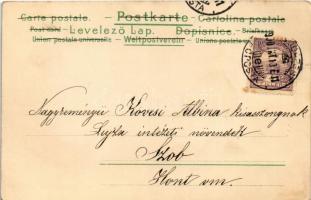 Carte postale. Postkarte Cartolina postale
Levelező Lap. Dopisnice. Briefkaart
Union postale universelle Weltpostverein Unione postale
Nagyreményű Kövesi Albina kisasszonynak
intézeti növendék
Szob
Hont vm.